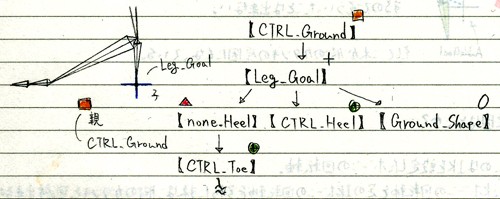 【CTRL_Ground】
Leg_Goal
【Leg_Goal】
親
CTRL_Ground
【none_Heel】【CTRL_Heel】【Ground_Shape】
【CTRL_Toe】